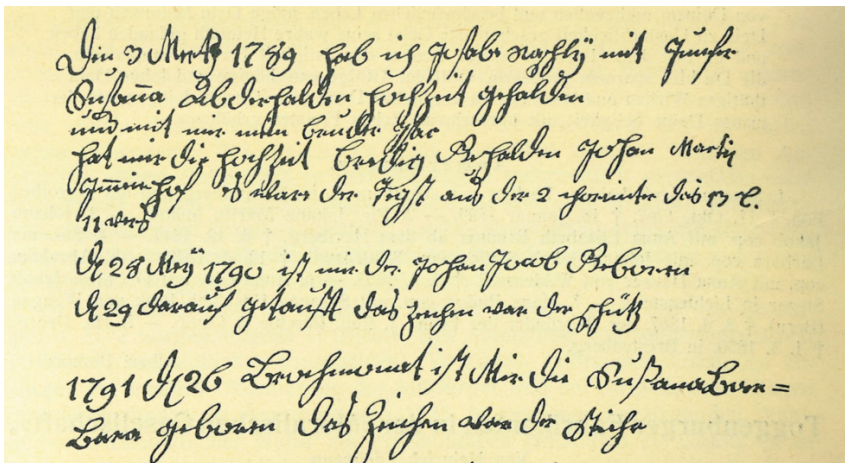 Den 3 Mertz 1789 hab ich Josabe Naghly mit Junfer
Susanna Abderhalden hochzeit gehalden
und mit mir mein bruder Jac
hat mir die hochzeit bredig Gehalden Johan Martin
Jmmin hof es ware der Tegst aus der 2 chorinter das 13 C.
11 vers
Den 28 Mey 1790 ist mir der Johan Jacob Geboren
Den 29 darauf getaufft das zeichen war der Schütz
1791 Den 26 Brochmonat ist Mir die Susana Bar=
Bara geboren das Zeichen war der Stihr